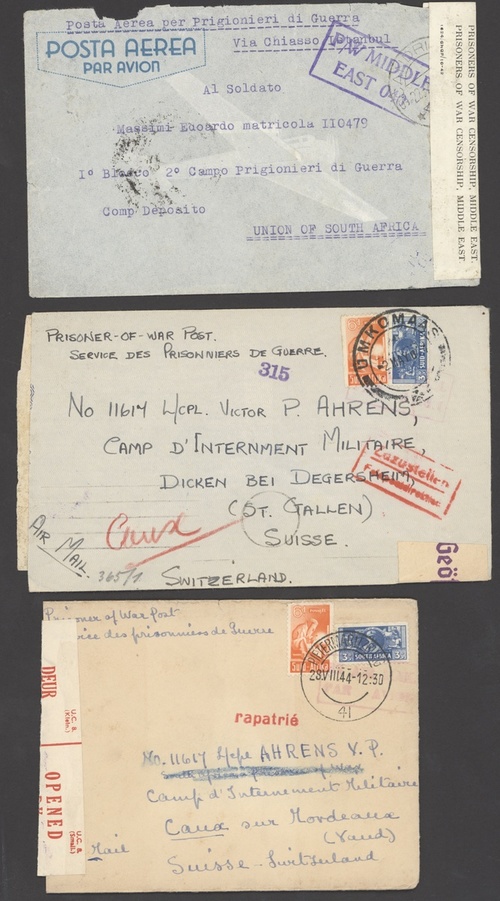 Posta Aerea per Prigionieri di Guerra
Via Chiasso Istanbul
POSTA AEREA
PAR AVION
P/W MIDDLE
EAST
Al Soldato
Massimi Edoardo matricola II0479
I° Blocco 2° Campo Prigionieri di Guerra
Comp Deposito
UNION OF SOUTH AFRICA
PRISONERS OF WAR CENSORSHIP, MIDDLE EAST.
PRISONERS OF WAR CENSORSHIP, MIDDLE EAST.
PRISONER-OF-WAR POST.
SERVICE DES PRISONNIERS DE GUERRE.
315
UMKOMAAS
No 11617 L/CPL. VICTOR P. AHRENS,
CAMP D'INTERNMENT MILITAIRE,
DICKEN BEI DEGERSHEIM,
(ST. GALLEN)
SUISSE.
SWITZERLAND.
Zuzustellen
Caux
AIR MAIL.
365/1
Geö
Prisoner of War Post
vice des prisonniers de Guerre
SOUTH AFRICA
28.VIII.44-12:30
41
rapatrié
DEUR
OPENED
U.C. 8.
U.C. 8
No. 11617 L/cpl AHRENS V. P.
Camp d'Internement Militaire
Caux sur Mordeaux
(Vaud)
Mail
Suisse - Switzerland